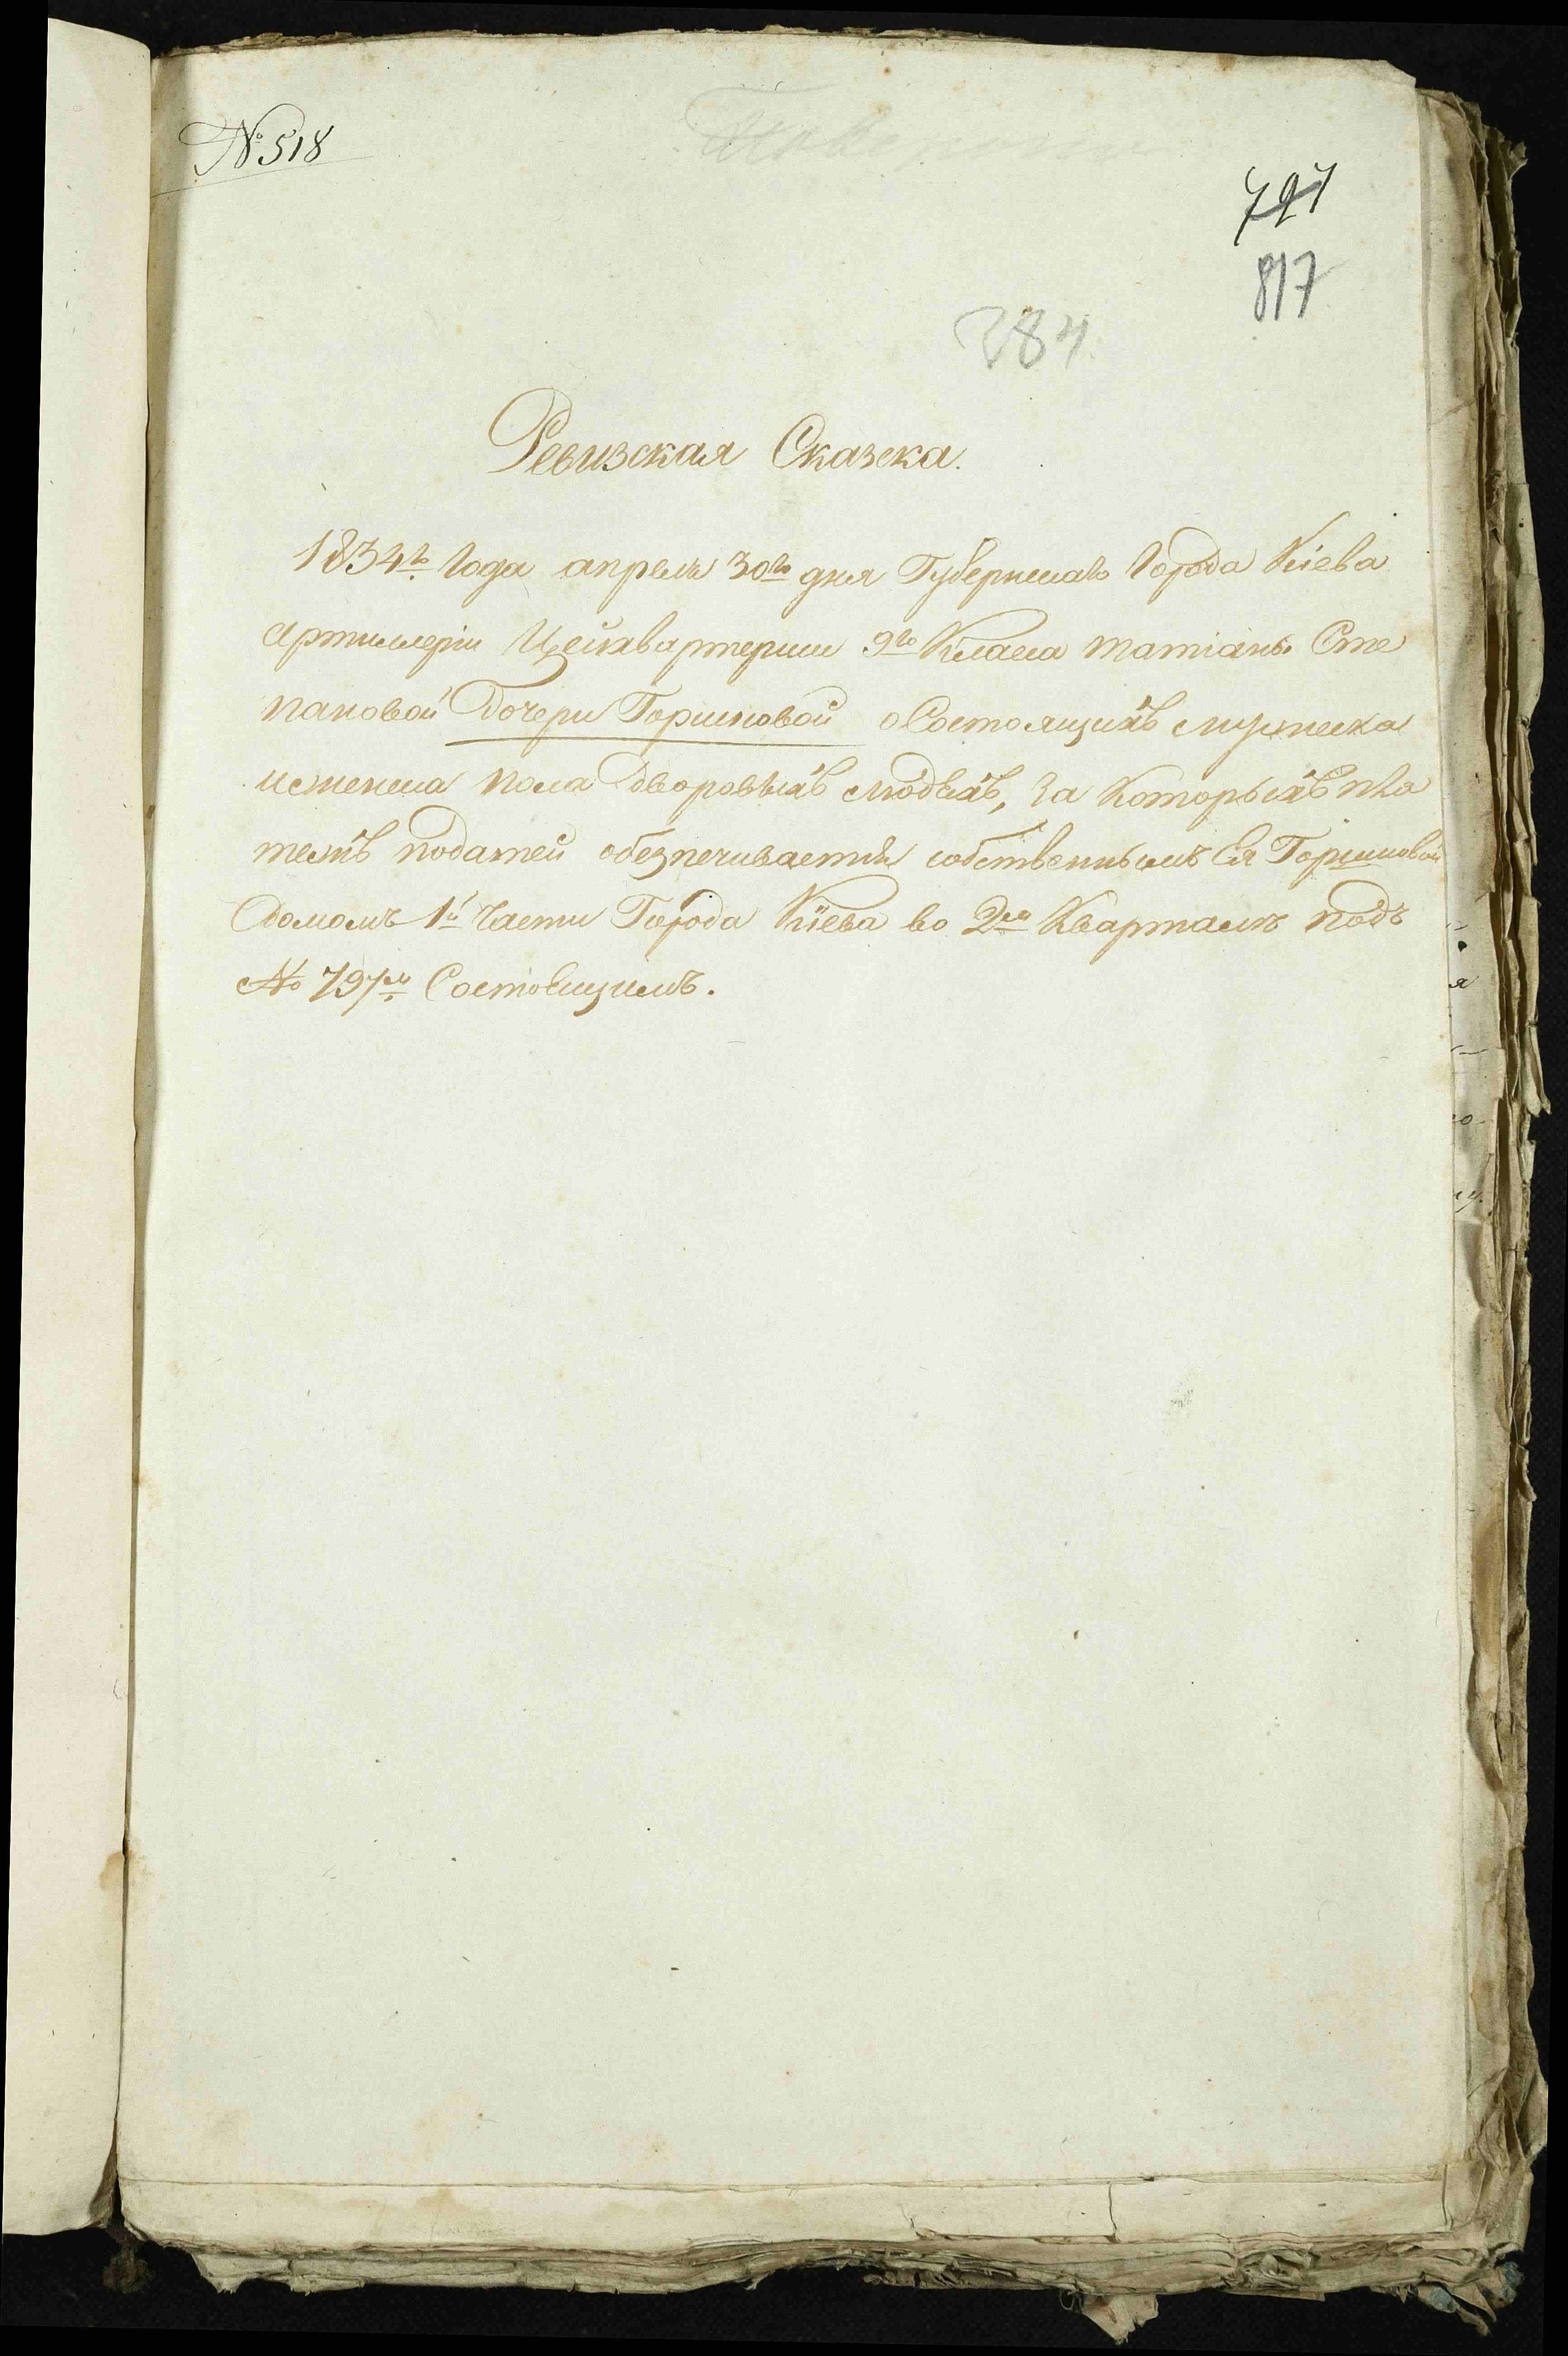 № 518
797
817
384
Ревизская Сказска.
1834го Года апреля 30го дня Губернскаго Города Кіева
Артиллеріи Цейхвартерши 9го Класса татіаны Сте
пановой дочери Горшковой о Состоящихъ мужеска
иженска пола дворовыхъ людехъ, За Которыхъ пла
тежъ податей обезпечивается собственнымъ Ея Горшковой
домомъ 1й Части Города Кіева во 2мъ Кварталѣ подъ
№ 797мъ Состоящимъ.